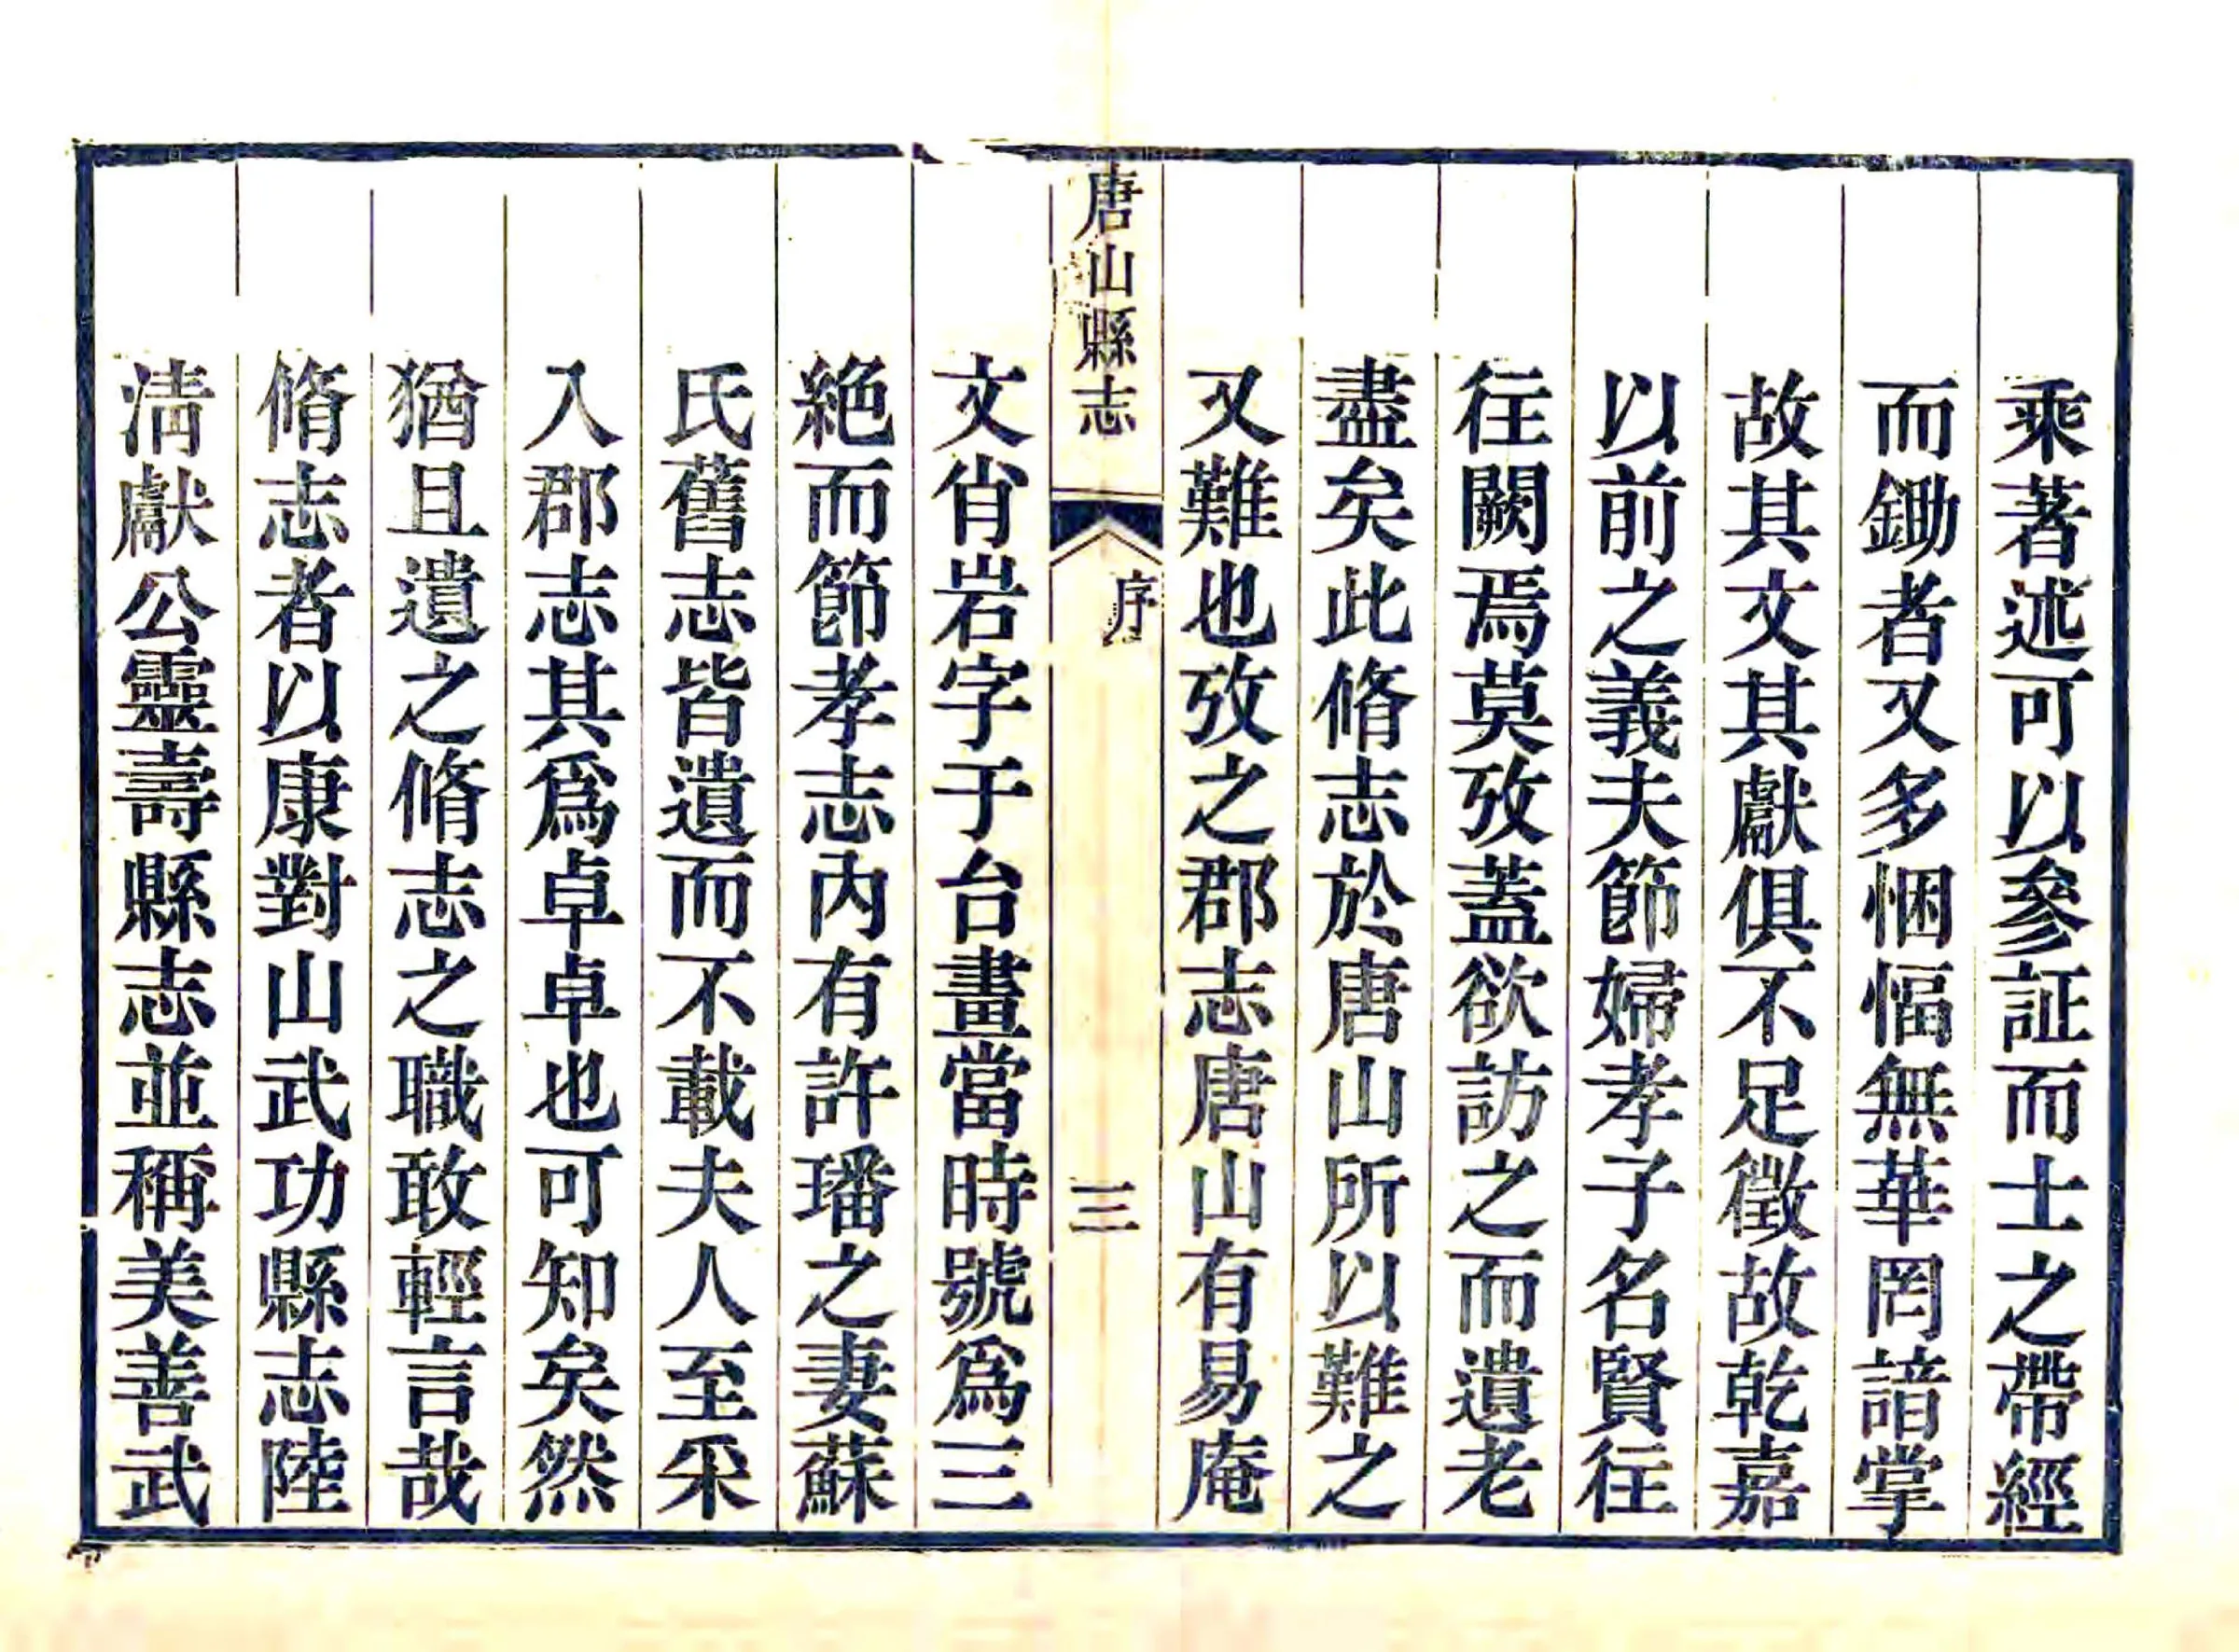 乘著述可以參証而士之帶經
而鋤者又多悃愊無華罔諳掌
故其文其獻俱不足徵故乾嘉
以前之義夫節婦孝子名賢往
往闕焉莫攷蓋欲訪之而遺老
盡矣此脩志於唐山所以難之
又難也攷之郡志唐山有易庵
唐山縣志
序
三
文肖岩字于台畫當時號爲三
絶而節孝志內有許璠之妻蘇
氏舊志皆遺而不載夫人至采
入郡志其爲卓卓也可知矣然
猶且遺之脩志之職敢輕言哉
脩志者以康對山武功縣志陸
淸獻公靈壽縣志並稱美善武